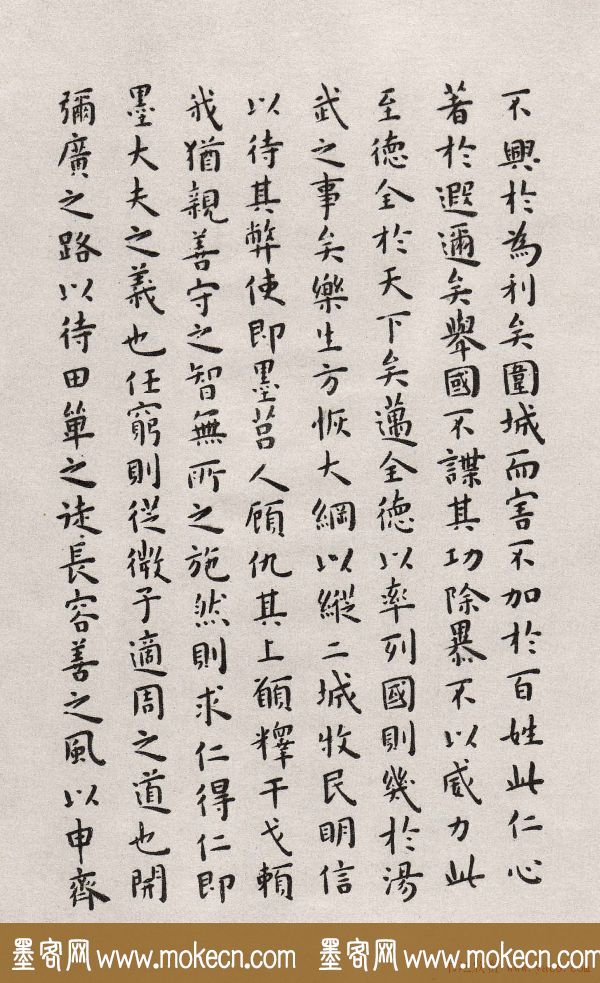 不興於為利矣圍城而害不加於百姓此仁心
著於遐邇矣舉國不謀其功除暴不以威力此
至德全於天下矣邁全德以率列國則幾於湯
武之事矣樂生方恢大綱以縱二城收民明信
以待其弊使即墨莒人顧仇其上願釋干戈賴
我猶親善守之智無所之施然則求仁得仁即
墨大夫之義也任窮則從微子適周之道也開
彌廣之路以待田單之徒長容善之風以申齊
墨客网 www.mokecn.com 墨客网 www.mokecn.com